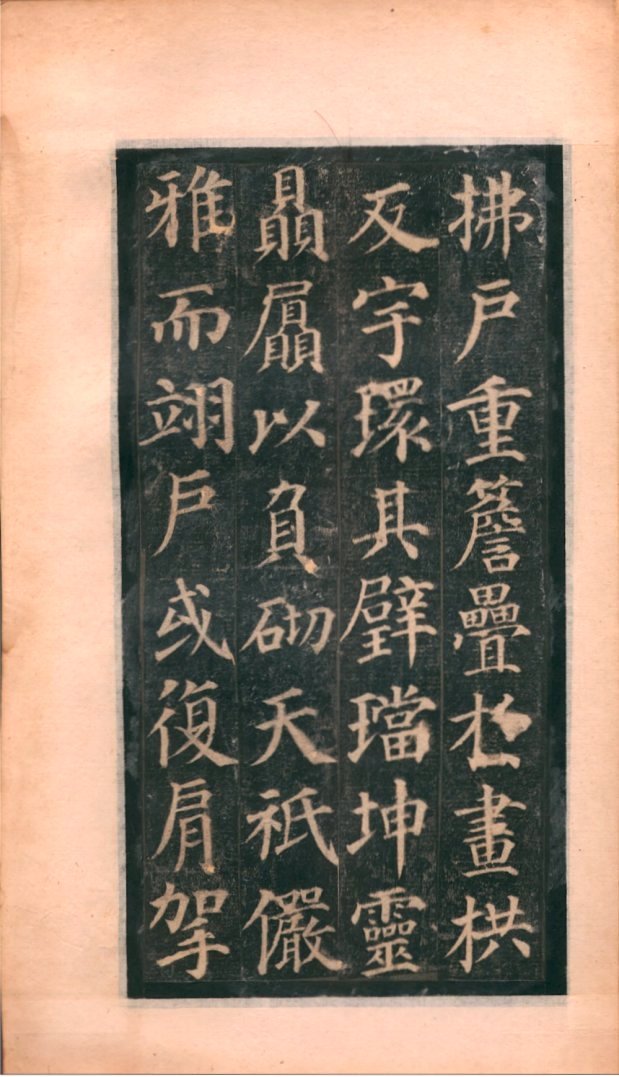 拂戶重簷疊扵畫栱
反宇環其壁璫坤靈
贔屭以負砌天祇儼
雅而翊戶或復肩拏